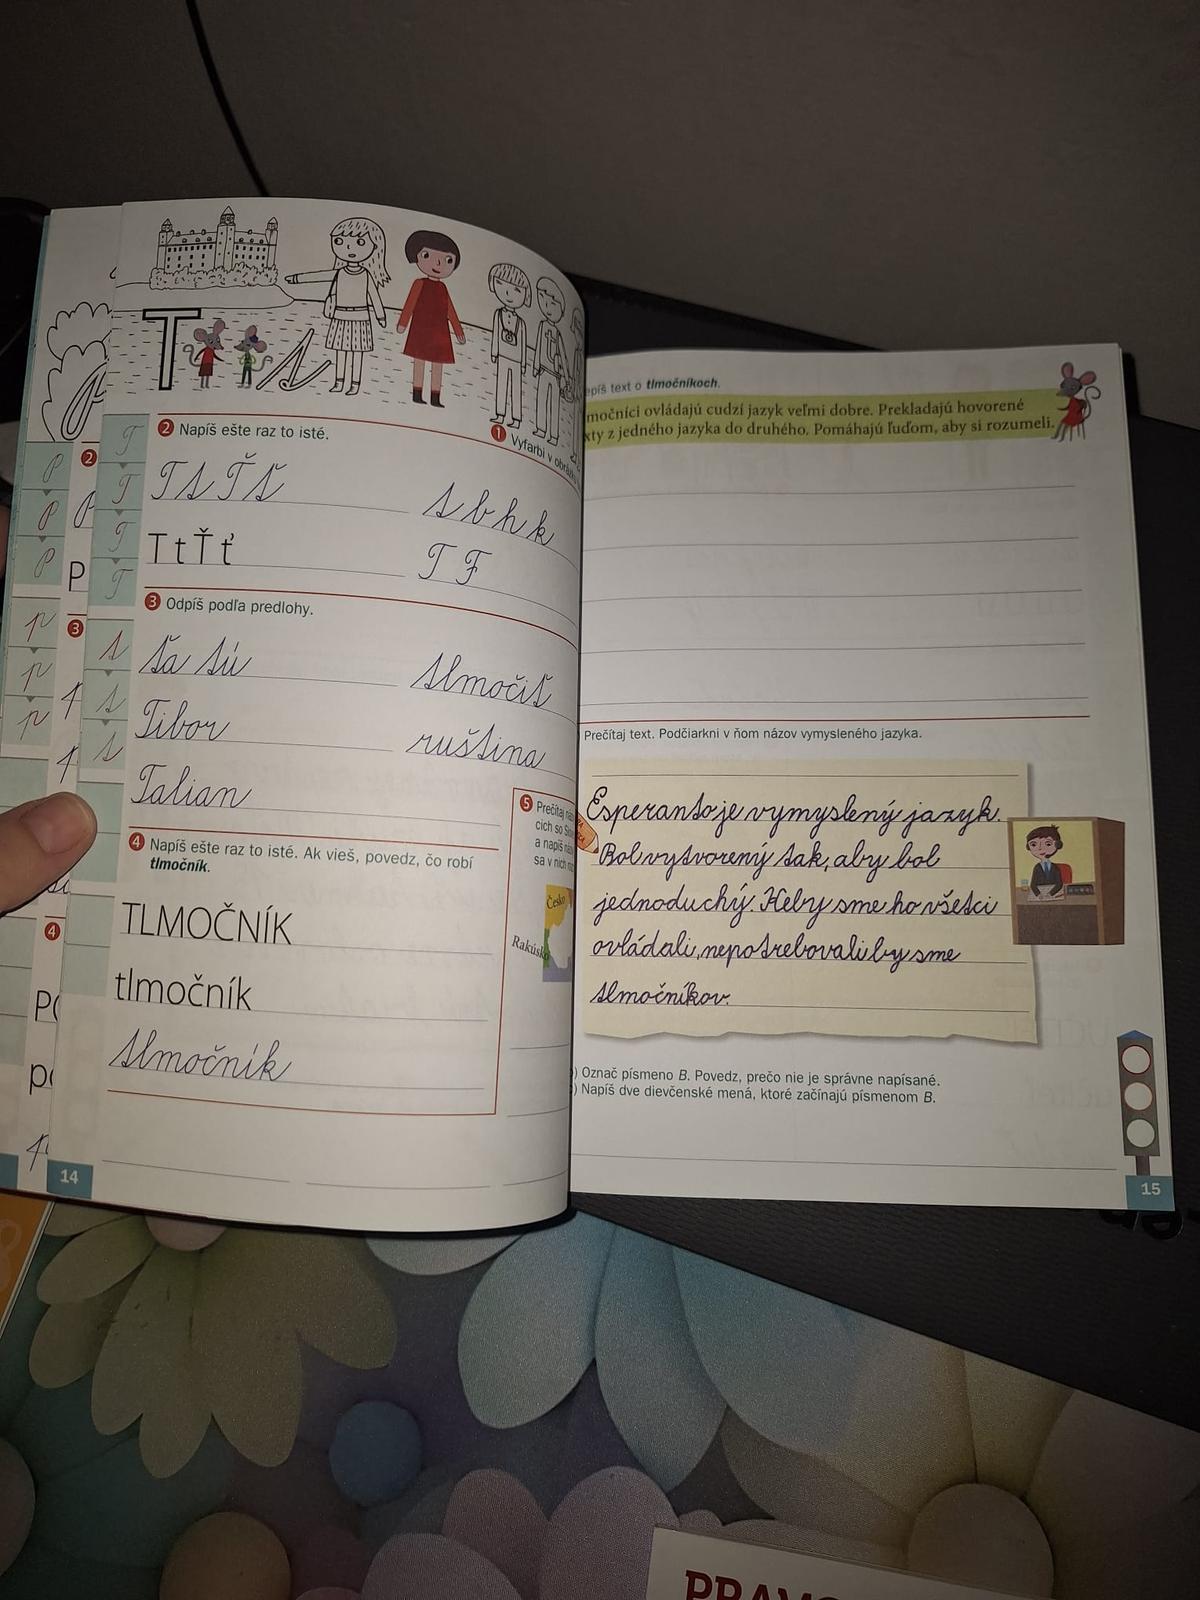 T
2 Napíš ešte raz to isté.
1 Vyfarbi v
T t Ť ť
t b h k
T t Ť ť
T F
3 Odpíš podľa predlohy.
ťa tú
tlmočiť
Tibor
ruština
Talian
4 Napíš ešte raz to isté. Ak vieš, povedz, čo robí
tlmočník.
TLMOČNÍK
tlmočník
tlmočník
5 Prečítaj
cich so
a napíš
sa v nich
Česko
Rakúsko
14
text o tlmočníkoch.
ovládajú cudzí jazyk veľmi dobre. Prekladajú hovorené
z jedného jazyka do druhého. Pomáhajú ľuďom, aby si rozumeli.
Prečítaj text. Podčiarkni v ňom názov vymysleného jazyka.
Esperanto je vymyslený jazyk.
Bol vytvorený tak, aby bol
jednoduchý. Keby sme ho všetci
ovládali, nepotrebovali by sme
tlmočníkov.
Označ písmeno B. Povedz, prečo nie je správne napísané.
Napíš dve dievčenské mená, ktoré začínajú písmenom B.
15
P
P
P
p
p
p
T
T
T
T
t
t
t
2
3
4